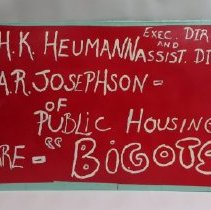 H.K. HEUMANN EXEC. DIR
AND
ASSIST. DI
A.R. JOSEPHSON -
OF
PUBLIC HOUSING
ARE - "BIGOTS